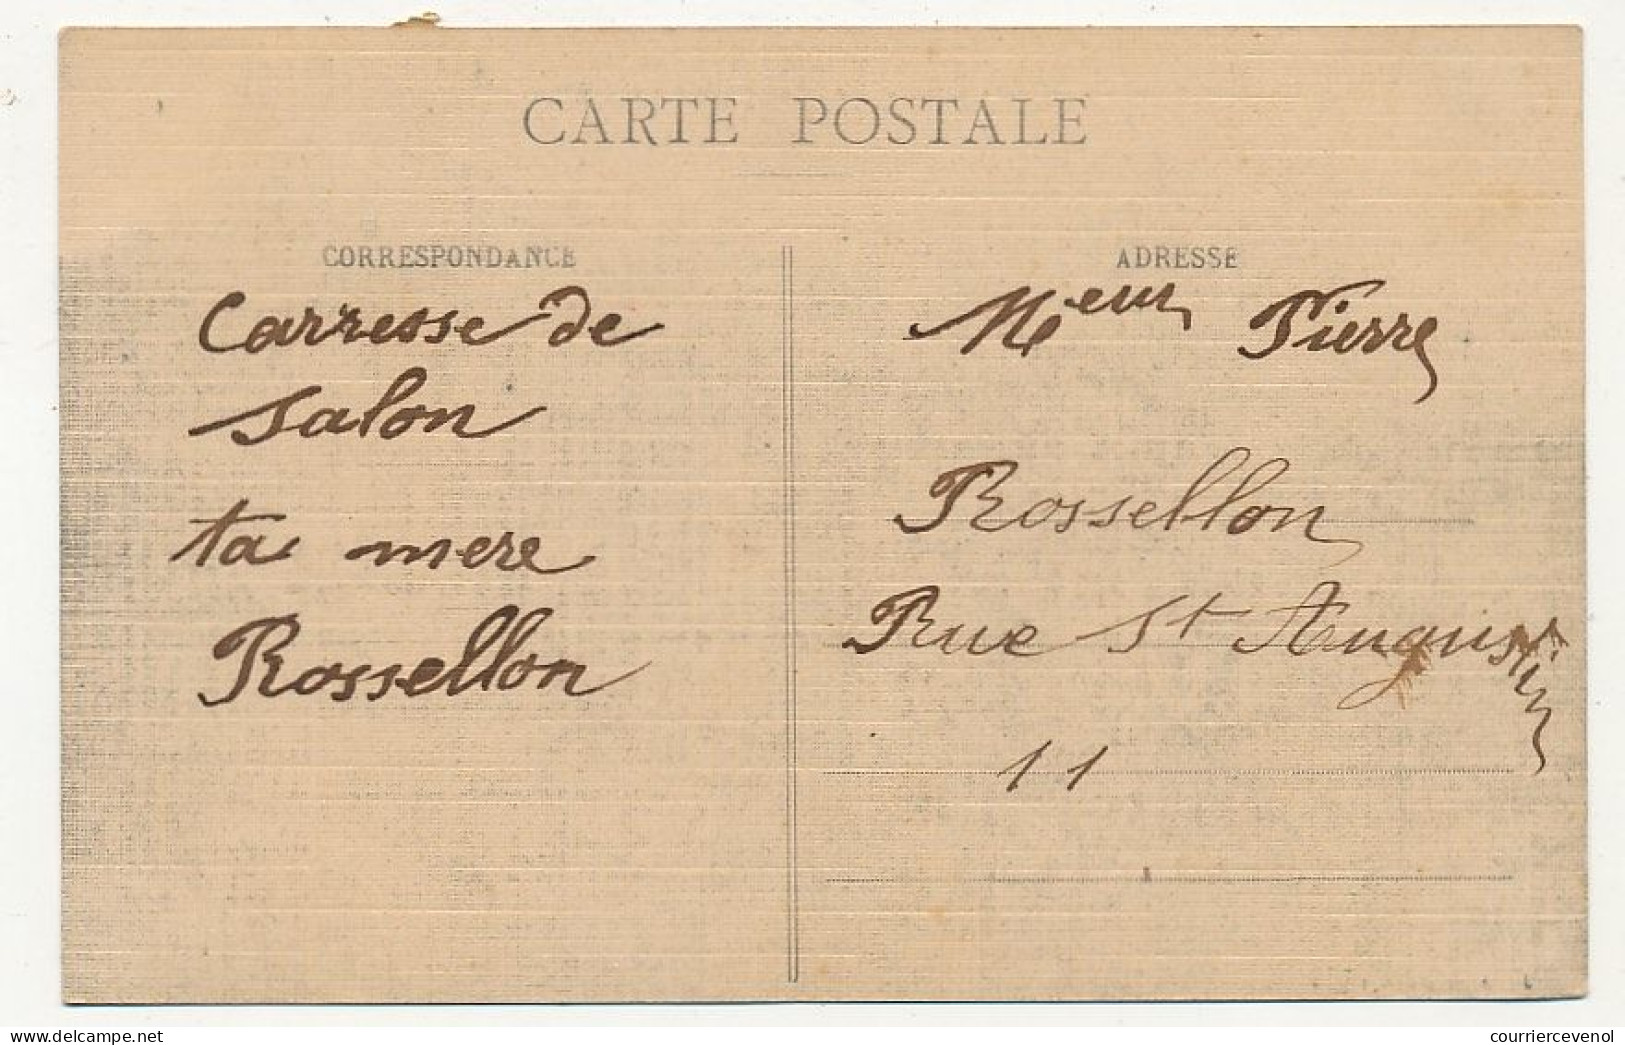 CARTE POSTALE
CORRESPONDANCE
Carresse de
Salon
ta mere
Rossellon
ADRESSE
Meur Pierre
Rossellon
Rue St Augustin
11
courriercevenol